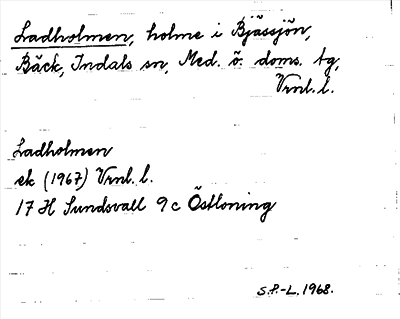 Ladholmen, holme i Bjässjön,
Bäck, Indals sn, Med. ö. doms. tg,
Vrnl. l.
Ladholmen
ek (1967) Vrnl. l.
17 H Sundsvall 9 c Östloning
S.P.-L. 1968.